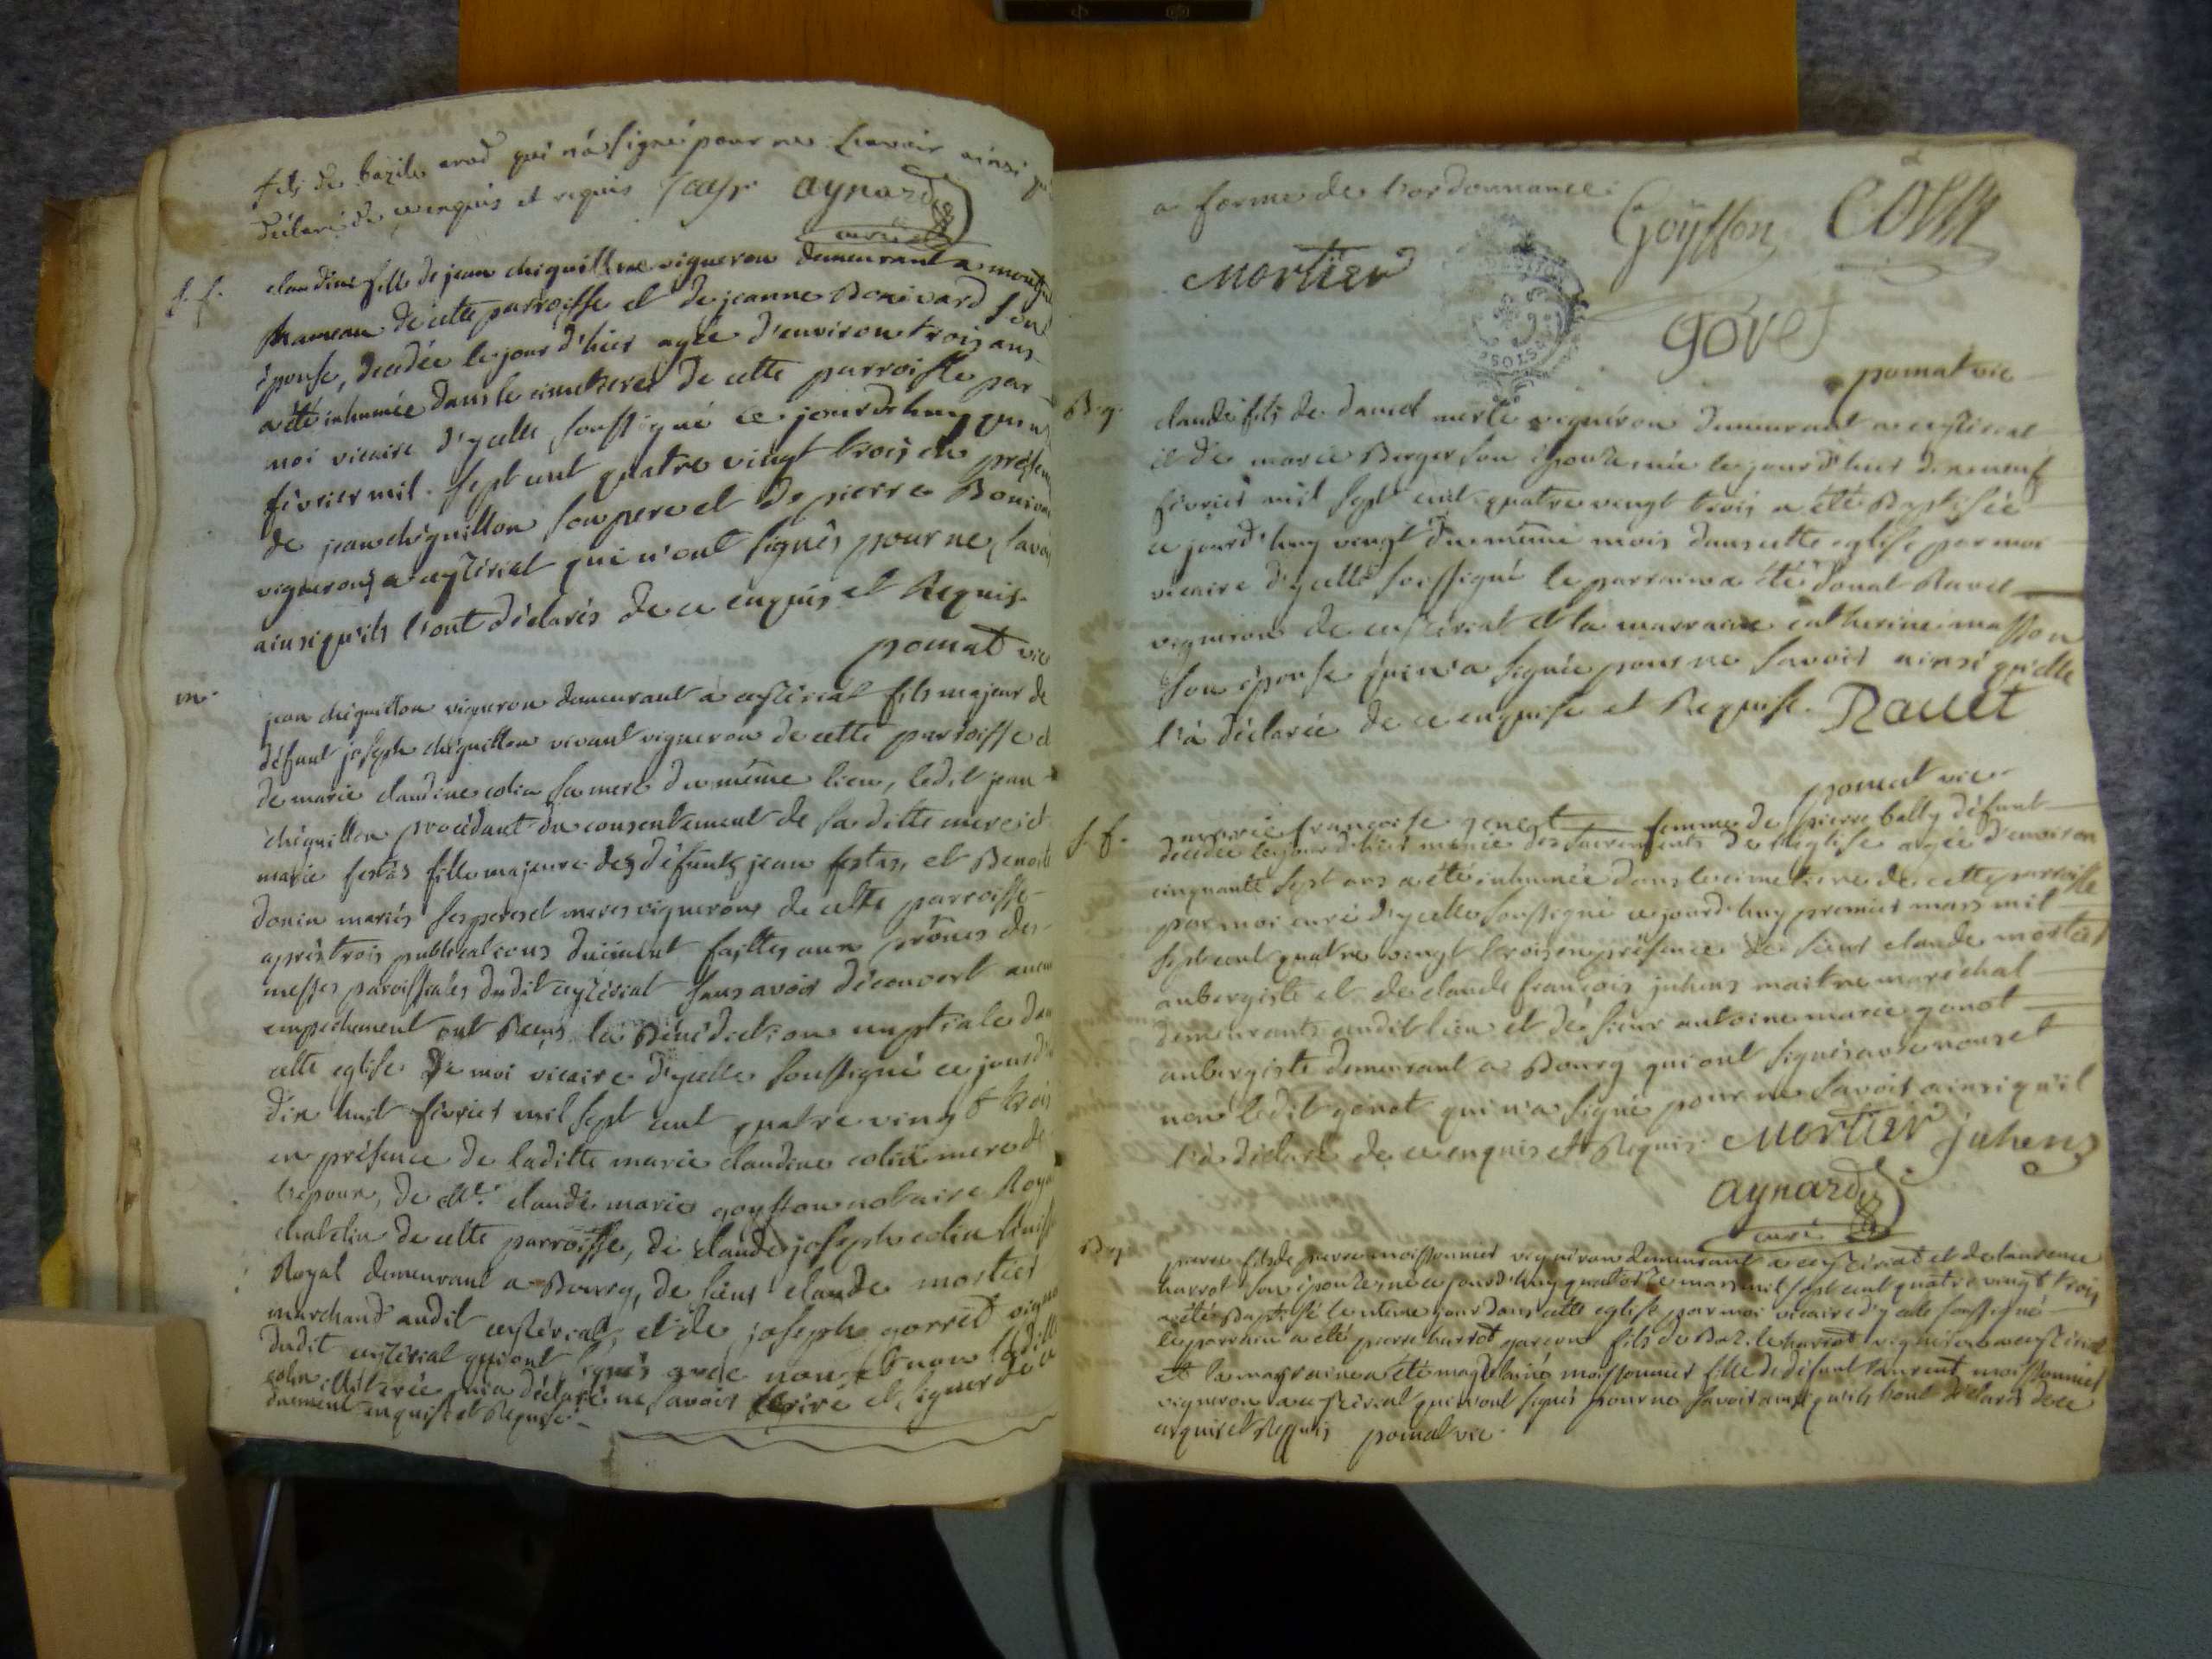 fils de bazile arod qui n'a signé pour ne savoir ainsi
déclaré de ce enquis et requis aynard
curé
s.f. claudine fille de jean chiquillon vigneron demeurant a
hameau de cette parroisse et de jeanne Bonivard son
épouse, décédée le jour d'hier agée d'environ trois ans
a été inhumée dans le cimetiere de cette parroisse par
moi vicaire d'ycelle soussigné ce jourdhuy
février mil sept cent quatre vingt trois en présence
de jean chiquillon son pere et de pierre
vignerons a ceyzériat qui n'ont signés pour ne savoir
ainsi qu'ils l'ont déclarés de ce enquis et Requis.
pomat vic
m. jean chiquillon vigneron demeurant a ceyzériat fils majeur de
défunt joseph chiquillon vivant vigneron de cette parroisse et
de marie claudine colin sa mere du même lieu, ledit jean
chiquillon procédant du consentement de sa ditte mere et
marie festas fille majeure des défunts jean festas et Benoite
donin mariés ses peres et meres vignerons de cette parroisse
après trois publications duement faittes aux prônes des
messes paroissiales dudit ceyzériat sans avoir découvert aucun
empechement ont Reçus la Bénédiction nuptiale dans
cette eglise de moi vicaire d'ycelle soussigné ce jourd'
dix huit février mil sept cent quatre vingt trois
en présence de laditte marie claudine colin mere de
l'epoux, de Me. claude marie goyffon notaire Royal
chatelin de cette parroisse, de claude joseph colin
Royal demeurant a Bourg, de sieur claude mortier
marchand audit ceyzériat, et de joseph gorret
dudit ceyzériat qui ont signés avec nous et non laditte
colin illiterée qui a déclaré ne savoir écrire et signer de ce
duement enquise et Requise
a forme de l'ordonnance.
Goyffon Colin
Mortier
govet
pomat vic
B.g. claude fils de daniel merle vigneron demeurant a ceyzériat
et de marie Berger son épouse née le jour d'hier dix neuf
février mil sept cent quatre vingt trois a été Baptisée
ce jourd'huy vingt du même mois dans cette eglise par moi
vicaire d'ycelle soussigné le parrain a été donat Ravet
vigneron de ceyzériat et la marraine catherine masson
son épouse qui n'a signée pour ne savoir ainsi qu'elle
l'a déclarée de ce enquise et Requise. Rauet
pomat vic
s.f. marie francoise genest femme de pierre bally défunt
décédée le jour d'hier munie des sacrements de l'eglise agée d'environ
cinquante sept ans a été inhumée dans le cimetiere de cette parroisse
par moi curé d'ycelle soussigné ce jourd'huy premier mars mil
sept cent quatre vingt trois en présence de sieur claude mortier
aubergiste et de claude françois juhens maitre maréchal
demeurants audit lieu et de sieur antoine marie gonot
aubergiste demeurant a Bourg qui ont signés avec nous et
non ledit gonot qui n'a signé pour ne savoir ainsi qu'il
l'a déclaré de ce enquis et Requis. Mortier juhens
aynard
curé
B.g. pierre fils de pierre moissonnier vigneron demeurant a ceyzériat et de laurence
harrot son épouse, né ce jourd'huy quatorze mars mil sept cent quatre vingt trois
a été Baptisé le même jour dans cette eglise par moi vicaire d'ycelle soussigné
le parrain a été pierre harrot garcon fils de Bazile harrot vigneron a ceyzériat
et la marraine a été magdelaine moissonnier fille de défunt laurent moissonnier
vigneron a ceyzériat qui n'ont signés pour ne savoir ainsi qu'ils l'ont déclarés de ce
enquis et Requis pomat vic.